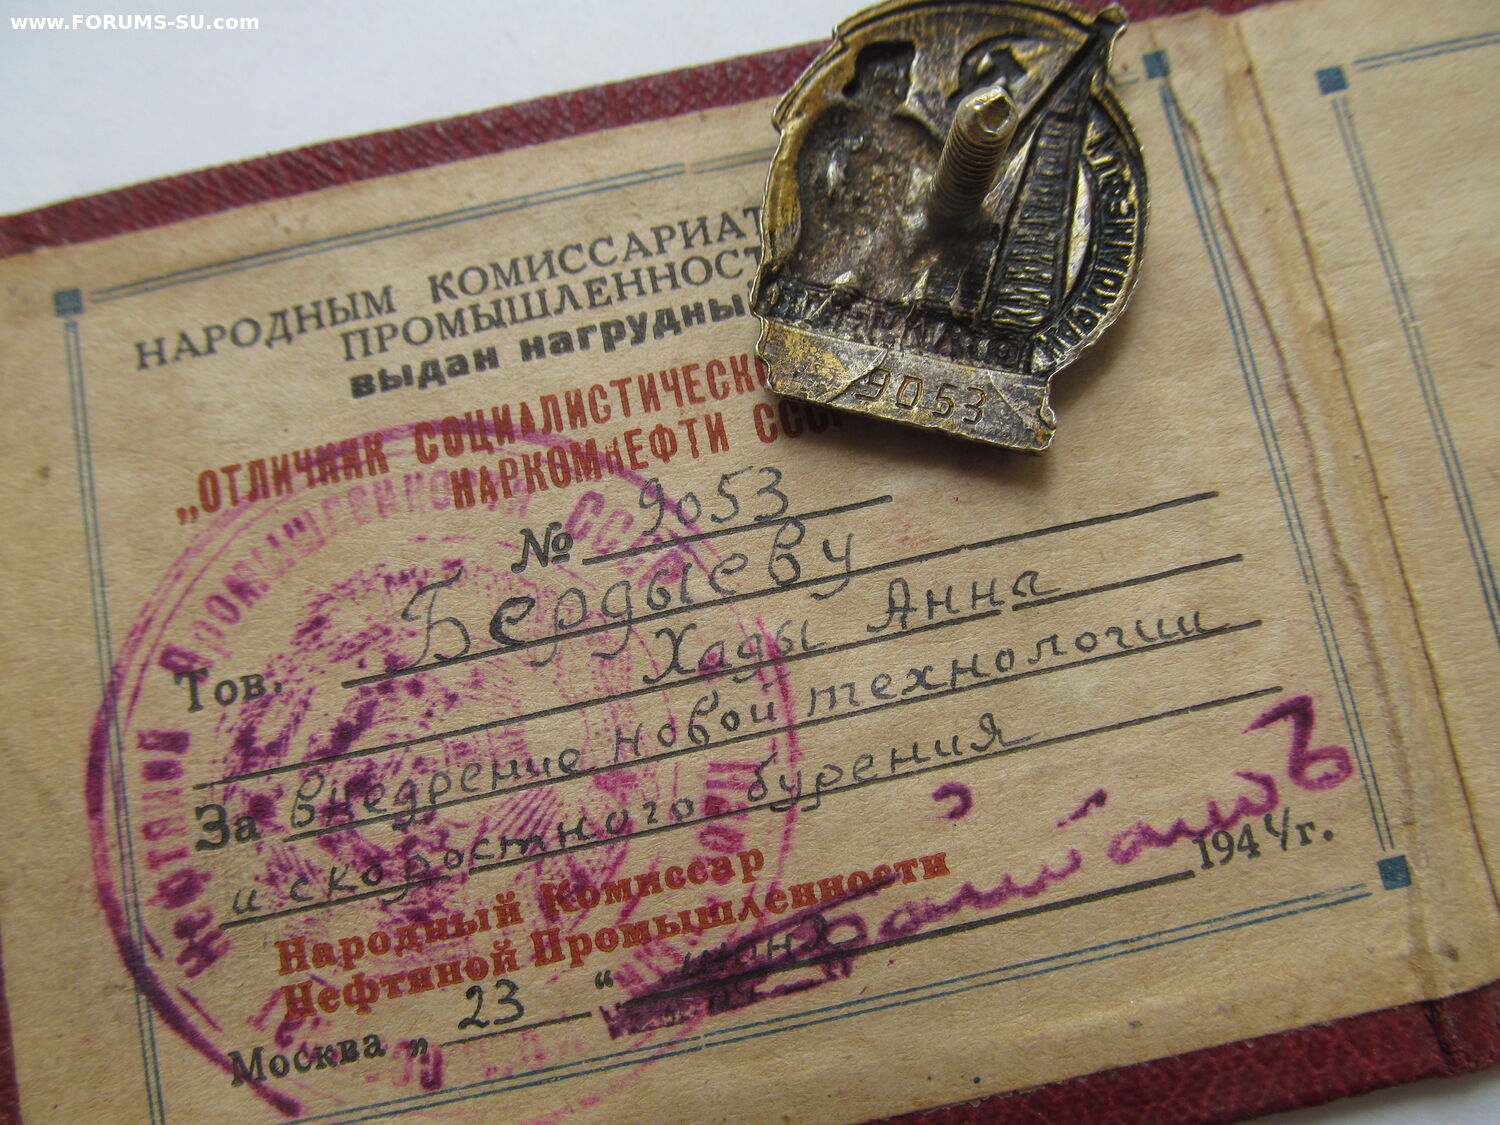 www.FORUMS-SU.com
НАРОДНЫМ КОМИССАРИАТ
ПРОМЫШЛЕННОСТ
выдан нагрудны
„ОТЛИЧНИК СОЦИАЛИСТИЧЕСКО
НАРКОМНЕФТИ СССР
№ 9053
Тов. Бердыеву
Хады Анна
За внедрение новой технологии
и скоростного бурения
Народный Комиссар
Нефтяной Промышленности
Москва „ 23 “ июня 1944 г.
9053
НЕФТЯНОЙ ПРОМЫШЛЕННОСТИ СССР